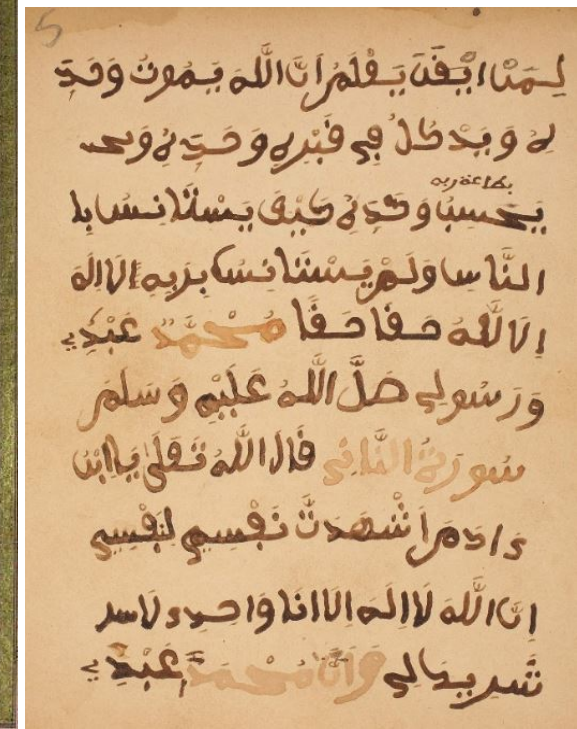 5
لِمَنْ ايْفَنَ يَعْلَمُ اَنَّ اللَّهَ يَمُوتُ وَحَدِ
هُ وَيَدْخُلُ فِي قَبْرِهِ وَحَدِهُ
بطاعة ربه
يَحْسِبُ وَحَدِهُ كَيْفَ يَسْتَانِسُ بِا
النَّاسِ وَلَمْ يَسْتَانِسُ بِرَبِهِ اِلَا اِلَهَ
اِلَا اللَّهُ حَقًا حَقًا مُحَمَّدٌ عَبْدِي
وَرَسُولِي صَلَّ اللَّهُ عَلَيْهِ وَسَلَمَ
سُورَةُ الثَّانِي قَالَ اللَّهُ تَعَلَى يَا ابْنَ
ءَادَمَ اَشْهَدتُّ نَفْسِي لِنَفْسِي
اِنَّ اللَّهَ لَا اِلَهَ اِلَا اَنَا وَاحِدِ لَا
شَرِيكَ لِي وَاَنَّ مُحَمَّدٌ عَبْدِي